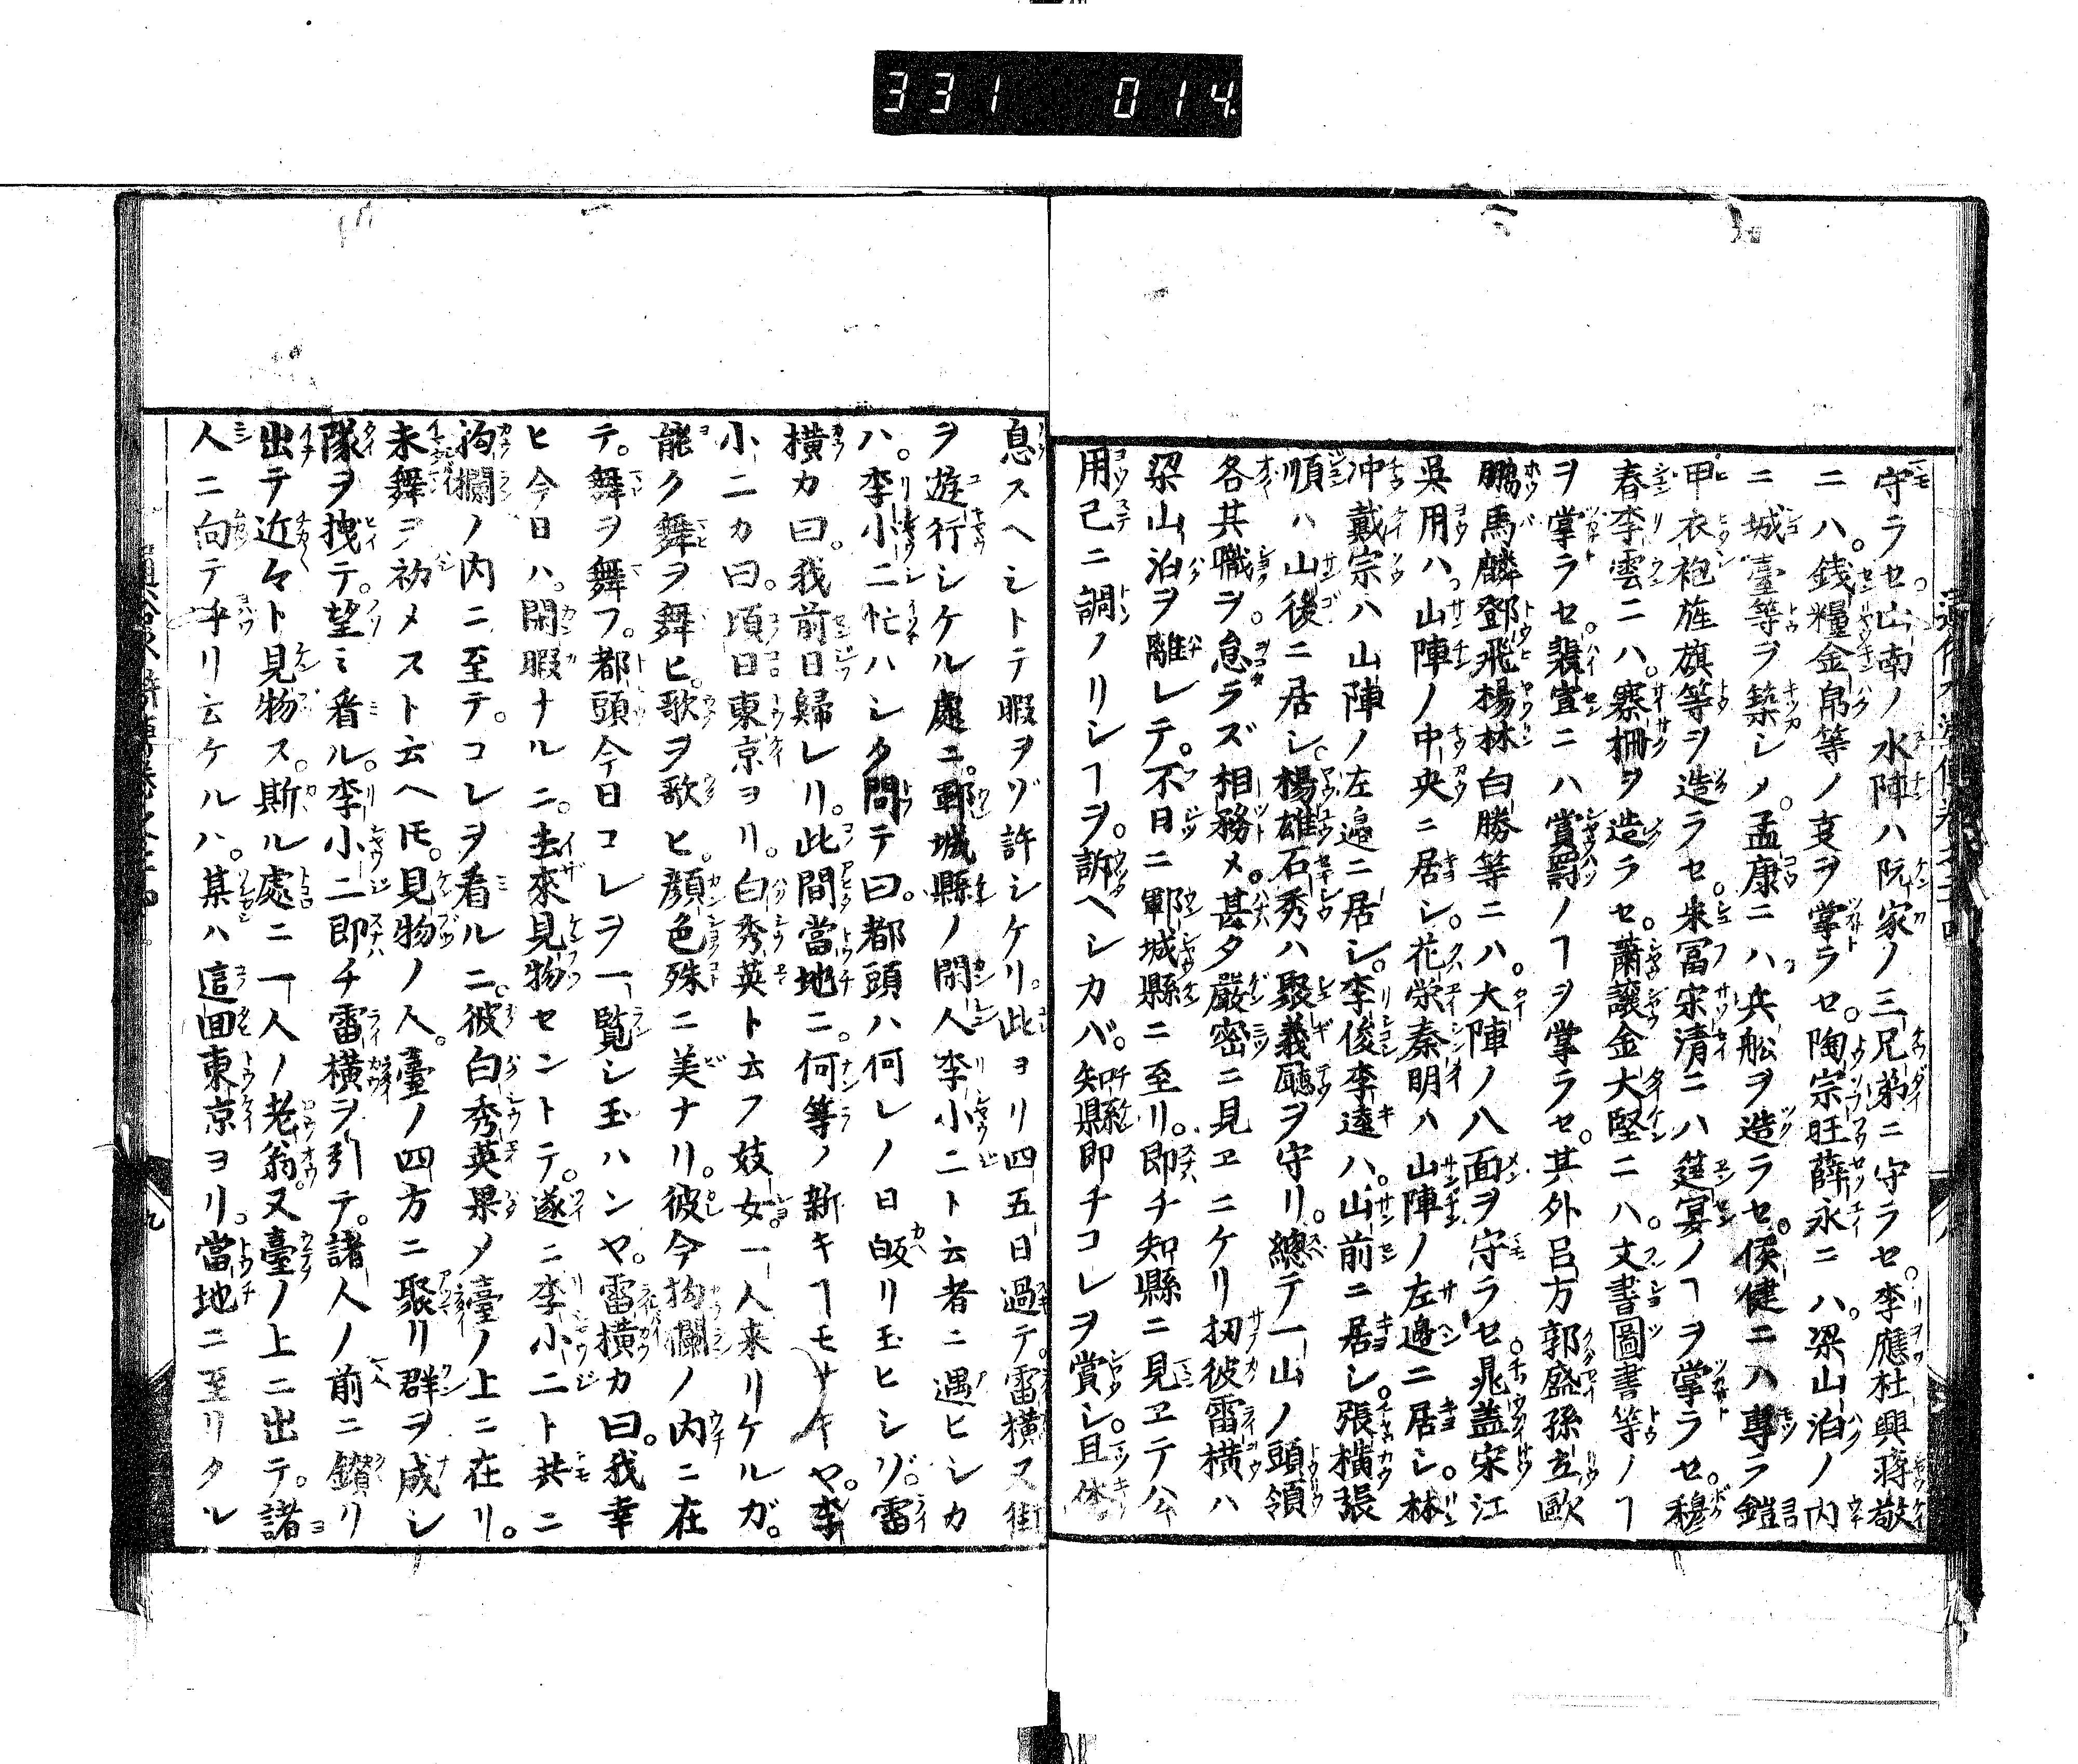 331 014.
守ラセ。山南ノ水陣ハ阮家ノ三兄弟ニ守ラセ。李應杜興蒋敬
ニハ。銭糧金帛等ノ支ヲ掌ラセ。陶宗旺薛永ニハ。梁山泊ノ内
ニ城臺等ヲ築シメ。孟康ニハ兵舩ヲ造ラセ。侯健ニハ專ラ鎧
甲衣袍旌旗等ヲ造ラセ。朱冨宋清ニハ筵宴ノヿヲ掌ラセ。穆
春李雲ニハ。寨柵ヲ造ラセ。蕭讓金大堅ニハ。文書圖書等ノヿ
ヲ掌ラセ。裴宣ニハ賞罰ノヿヲ掌ラセ。其外呂方郭盛孫立歐
鵬馬麟鄧飛楊林白勝等ニハ。大陣ノ八面ヲ守ラセ。晁盖宋江
吳用ハ。山陣ノ中央ニ居シ。花栄秦明ハ山陣ノ左邉ニ居シ。林
冲戴宗ハ山陣ノ左邉ニ居シ。李俊李逵ハ。山前ニ居シ。張橫張
順ハ山後ニ居シ。楊雄石秀ハ聚義廳ヲ守リ。總テ一山ノ頭領
各其職ヲ。怠ラズ相務メ。甚タ嚴密ニ見ヱニケリ扨彼雷橫ハ
梁山泊ヲ離レテ。不日ニ鄆城縣ニ至リ。即チ知縣ニ見ヱテ公
用已ニ調ノリシヿヲ。訴ヘシカバ。知縣即チコレヲ賞シ。且休
息スヘシトテ暇ヲゾ許シケリ。此ヨリ四五日過テ。雷横又街
ヲ遊行シケル處ニ。鄆城縣ノ閑人李小二ト云者ニ遇ヒシカ
ハ。李小二忙ハシク問テ曰。都頭ハ何レノ日皈リ玉ヒシゾ。雷
橫カ曰。我前日歸レリ。此間當地ニ。何等ノ新キヿモナキヤ。李
小二カ曰。頃日東京ヨリ。白秀英ト云フ妓女。一人来リケルガ。
能ク舞ヲ舞ヒ。歌ヲ歌ヒ。顔色殊ニ美ナリ。彼今拘欄ノ内ニ在
テ。舞ヲ舞フ。都頭今日コレヲ一覧シ玉ハンヤ。雷橫カ曰。我幸
ヒ今日ハ。閑暇ナルニ。去來見物セントテ。遂ニ李小二ト共ニ
拘欄ノ内ニ至テ。コレヲ看ルニ。彼白秀英果メ臺ノ上ニ在リ。
未舞ヲ初メスト云ヘ𪜈。見物ノ人。臺ノ四方ニ聚リ群ヲ成シ
隊ヲ拽テ。望ミ看ル。李小二即チ雷橫ヲ引テ。諸人ノ前ニ鑽リ
出テ近々ト見物ス。斯ル處ニ一人ノ老翁。又臺ノ上ニ出テ。諸
人ニ向テ乎リ云ケルハ。某ハ這囬東京ヨリ。當地ニ至リタル
九